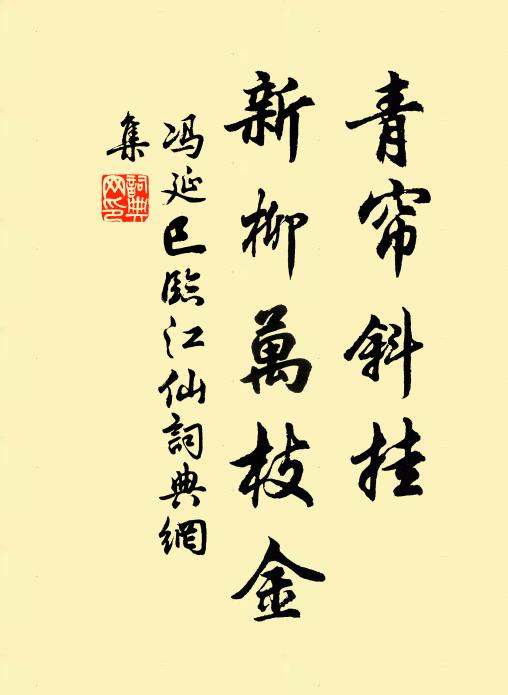 青帘斜挂
新柳萬枝金
冯延巳臨江仙詞典網
集
詞典網印